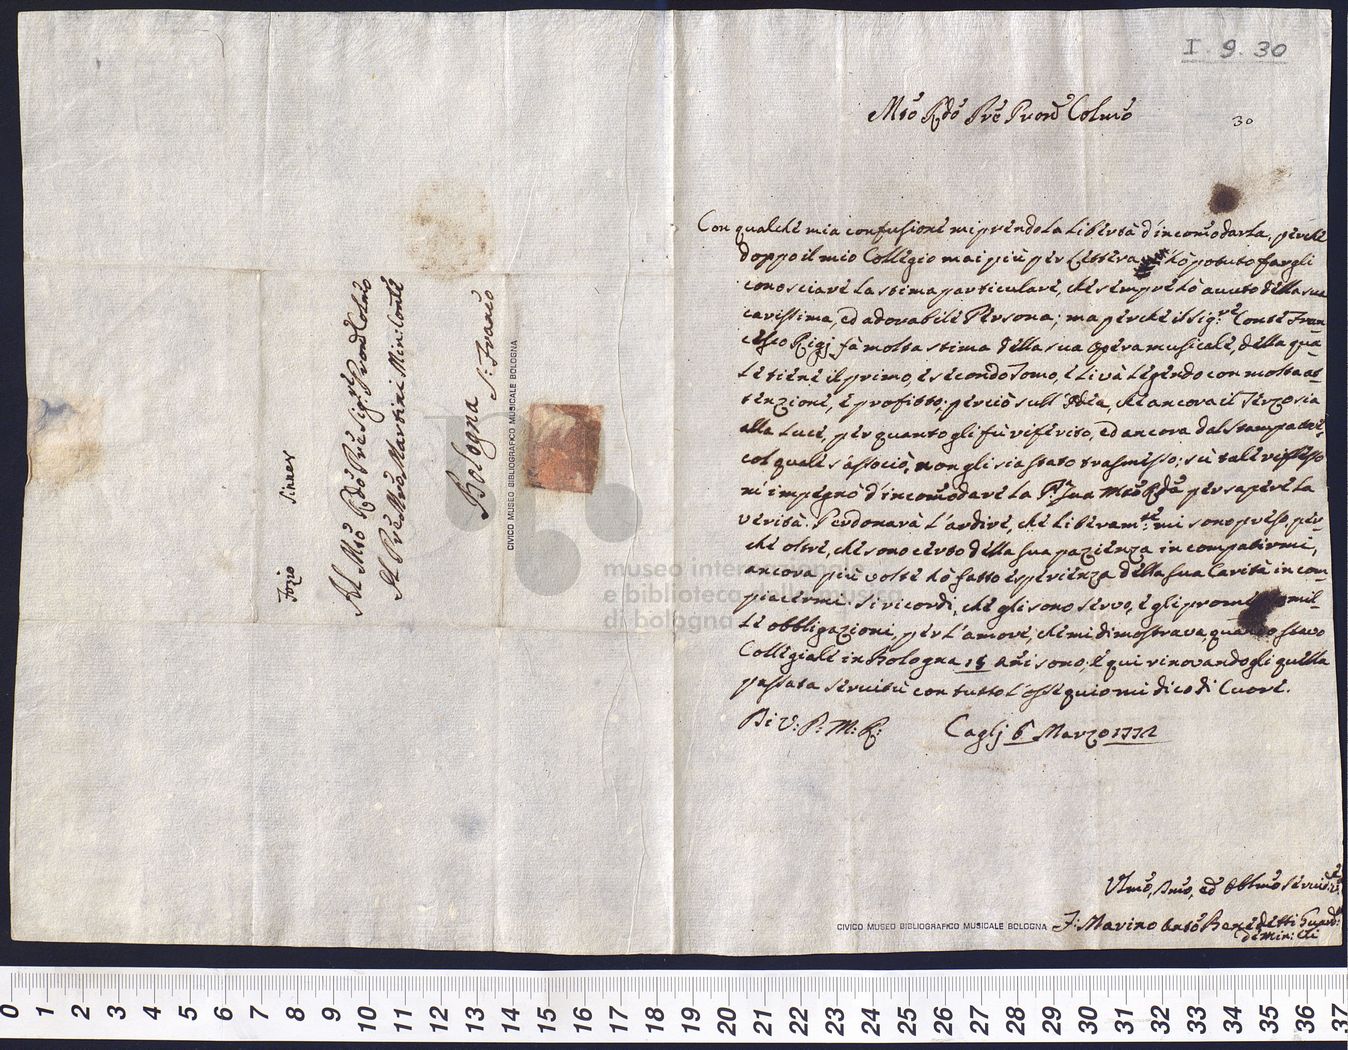 I. 9. 30
Mtõ Rdõ Prẽ Pron̄ Colmõ
30
Con qualche mia confusione mi prendo la libertà d'incõmodarla, perche
doppo il mio Collegio mai più per Lettera hò potuto fargli
conosciare la stima particulare, che sempre hò avuto della sua
carissima, ed adorabile Persona; ma perche il Sig.re Conte Fran-
cesco Rigj fà molta stima della sua Opera musicale, della qua-
le tiene il primo, e secondo Tomo, e li và legendo con molta at-
tenzione, e profitto; perciò sull'Idea, che ancora il Terzo sia
alla Luce, per quanto gli fù riferito, ed ancora dal Stampatore
col quale s'associò, non gli sia stato trasmesso; sù tale riflesso
m'impegnò d'incõmodare la P. Sua Mtõ Rdã per sapere la
verità. Perdonarà l'ardire, che liberam.te mi sono preso, per-
che oltre, che sono certo della sua pazienza in compatirmi,
ancora più volte hò fatto esperienza della sua Carità in com-
piacermi. Si ricordi, che gli sono servo, e gli
le obbligazioni, per l'amore, che mi dimostrava, quando stavo
Collegiale in Bologna 15 Añi sono; e qui rinovandogli quella
passata servitù con tutto l'ossequio mi dico di Cuore.
Di V: P: M: R:
Caglj 6 Marzo 1772
Umõ, Dmõ, ed Obblmõ Servid.re
F: Marino Antõ Benedetti Guard:
de Min: Cti
Al Mtõ Rdõ Prẽ Sig.re Pron̄ Colmõ
Il Prẽ Mrõ Martini Min: Contle
Bologna S: Franco
CIVICO MUSEO BIBLIOGRAFICO MUSICALE BOLOGNA
CIVICO MUSEO BIBLIOGRAFICO MUSICALE BOLOGNA
museo internazionale
e biblioteca della musica
di bologna
0 1 2 3 4 5 6 7 8 9 10 11 12 13 14 15 16 17 18 19 20 21 22 23 24 25 26 27 28 29 30 31 32 33 34 35 36 37